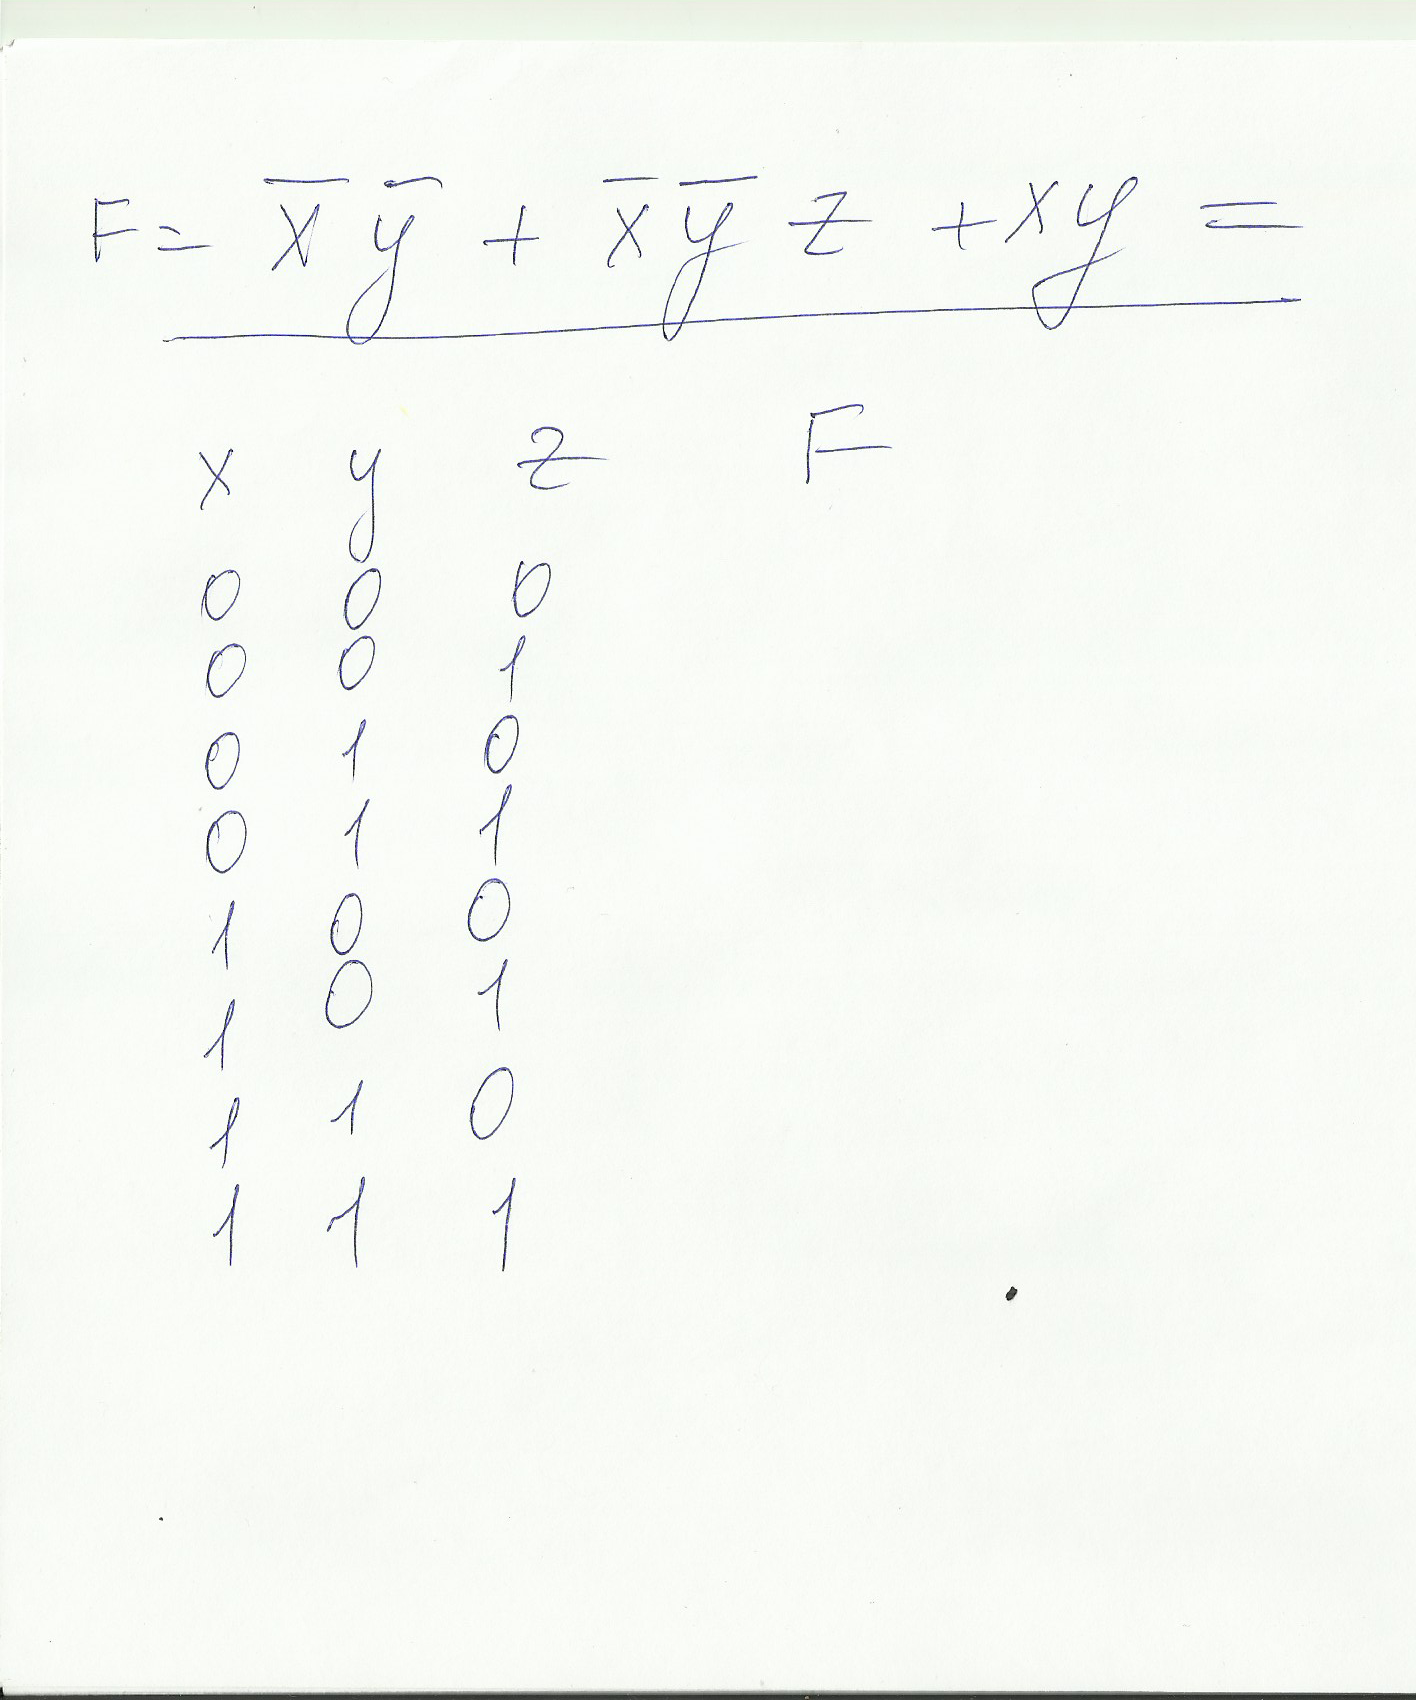 F = x̅ y̅ + x̅ y̅ z + x y =
x y z F
0 0 0
0 0 1
0 1 0
0 1 1
1 0 0
1 0 1
1 1 0
1 1 1